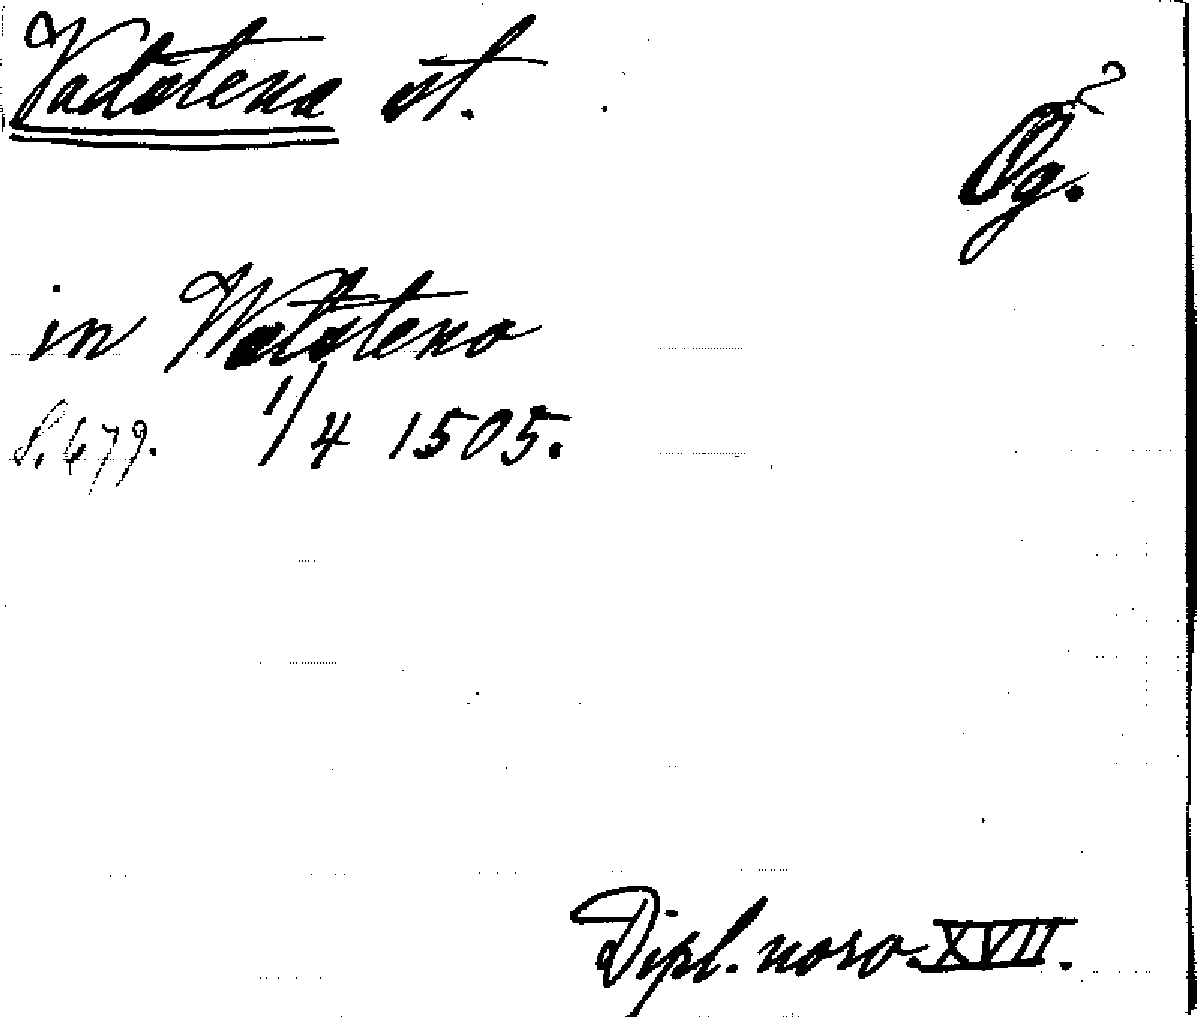 Vadstena st.
Ög.
in Watzteno
S. 479. 1/4 1505.
Dipl. norv. XVII.